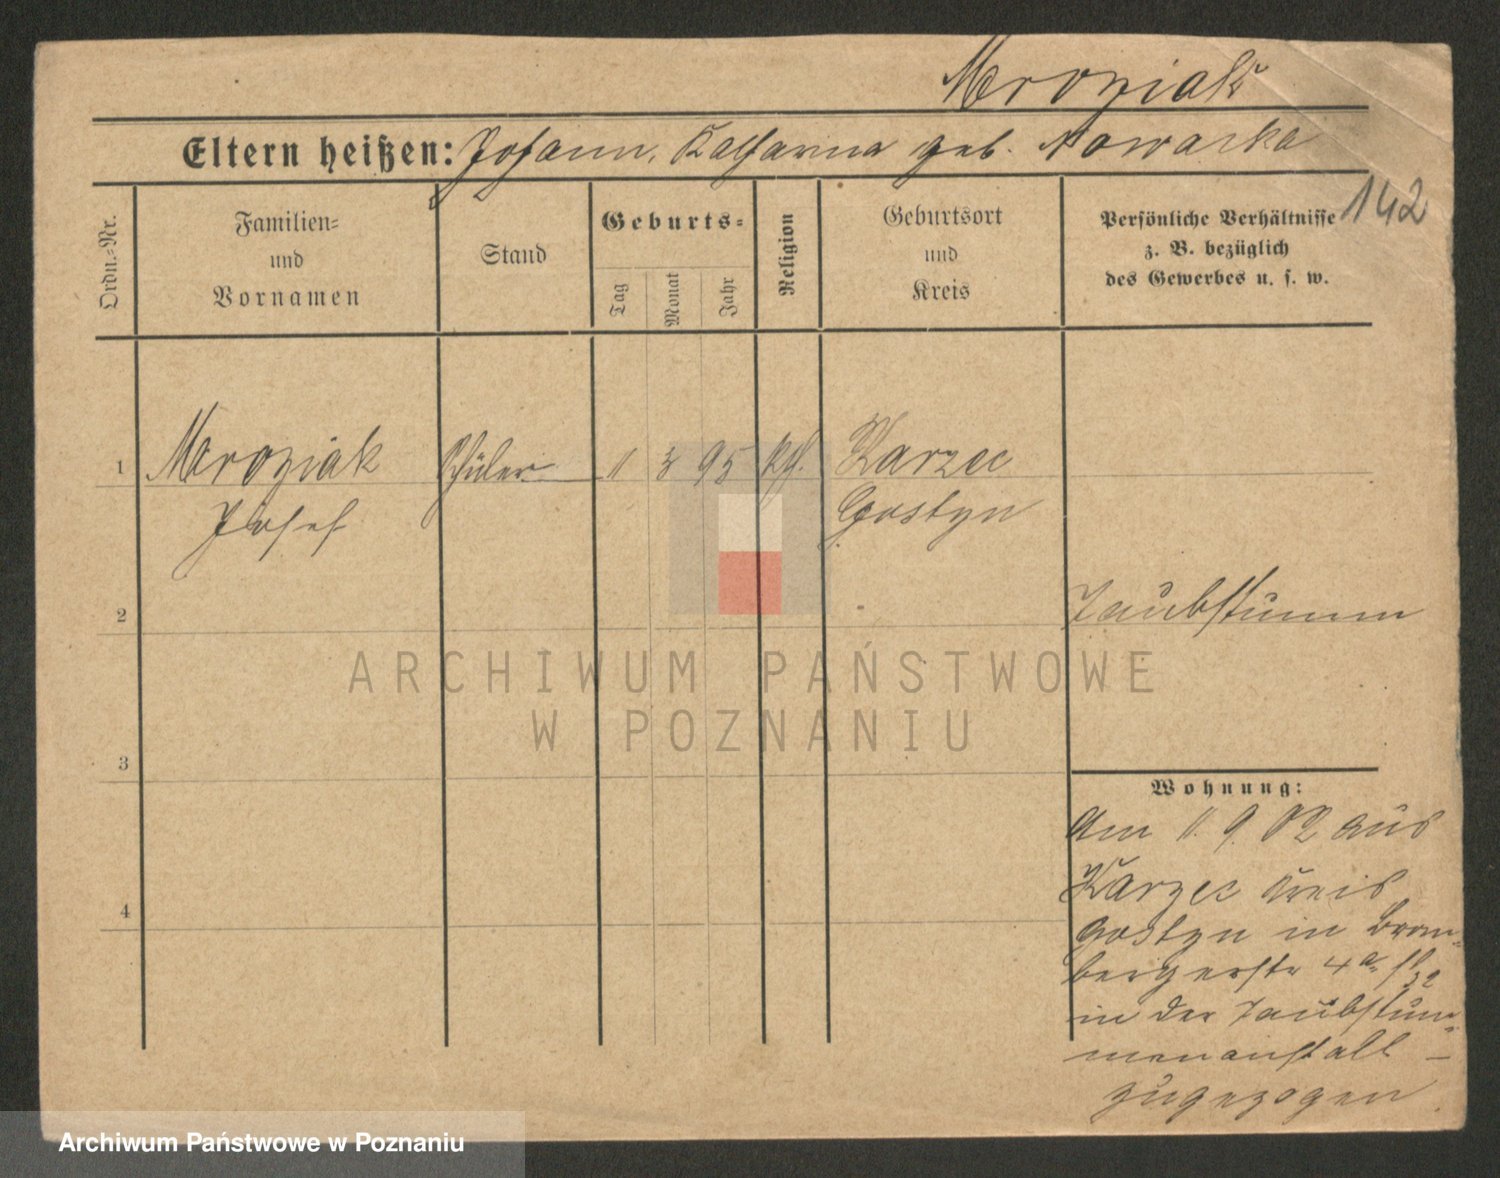 Mroziak
Eltern heißen: Johann, Katharina geb. Nowacka
142
Ordn.-Nr.
Familien-
und
Vornamen
Stand
Geburts-
Tag
Monat
Jahr
Religion
Geburtsort
und
Kreis
Persönliche Verhältnisse
z. B. bezüglich
des Gewerbes u. s. w.
1 Mroziak Schüler 11 3 95 kth. Karzec
Josef Gostyn
2 Taubstumm
3
4
Wohnung:
Am 11. 9. 02 aus
Karzec Kreis
Gostyn in Brom-
bergerstr 4a
in der Taubstum-
menanstalt –
zugezogen
ARCHIWUM PAŃSTWOWE
W POZNANIU
Archiwum Państwowe w Poznaniu